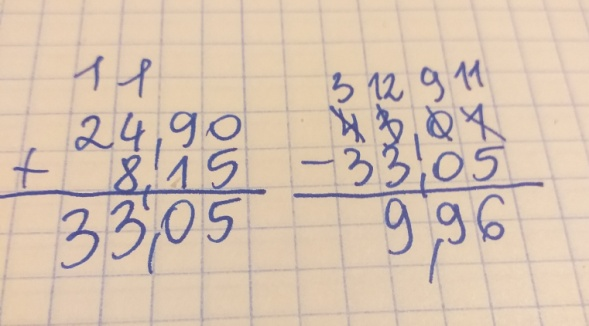 1 1
24,90
+ 8,15
33,05
3 12 9 11
43,01
-33,05
9,96